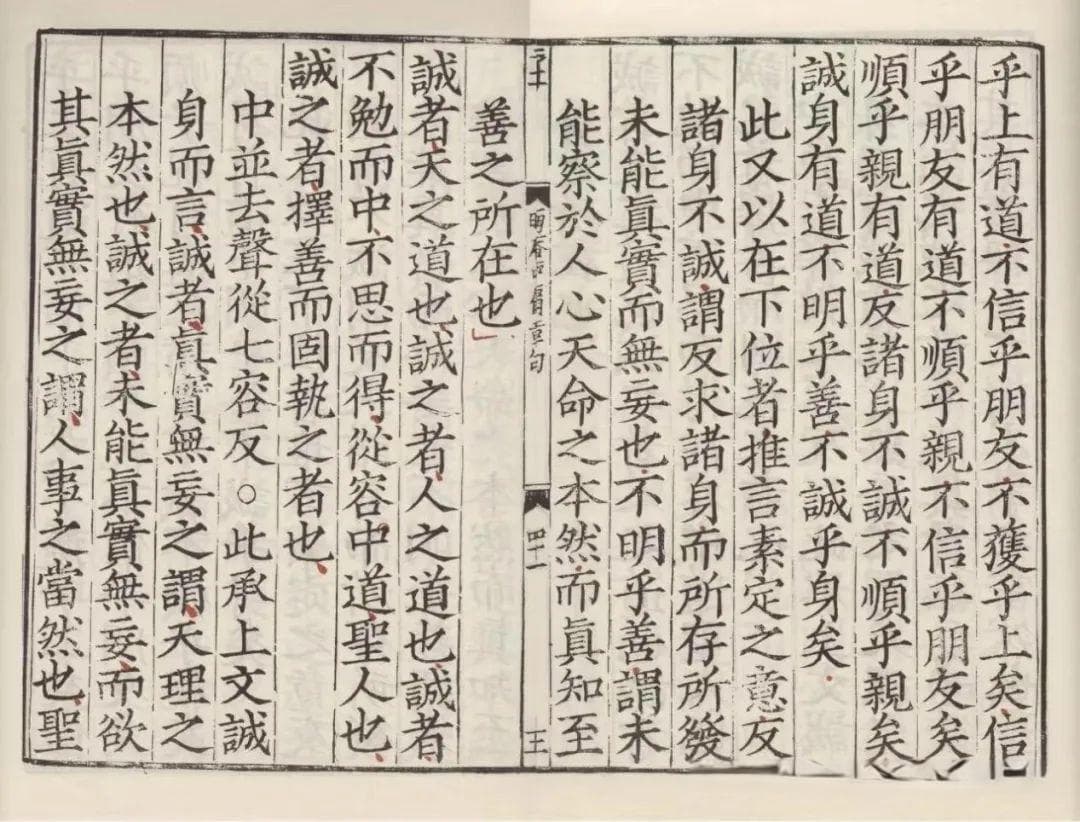 乎上有道不信乎朋友不獲乎上矣信
乎朋友有道不順乎親不信乎朋友矣
順乎親有道反諸身不誠不順乎親矣
誠身有道不明乎善不誠乎身矣
此又以在下位者推言素定之意反
諸身不誠謂反求諸身而所存所發
未能眞實而無妄也不明乎善謂未
能察於人心天命之本然而眞知至
章句
王
善之所在也
誠者天之道也誠之者人之道也誠者
不勉而中不思而得從容中道聖人也
誠之者擇善而固執之者也
中並去聲從七容反○此承上文誠
身而言誠者眞實無妄之謂天理之
本然也誠之者未能眞實無妄而欲
其眞實無妄之謂人事之當然也聖